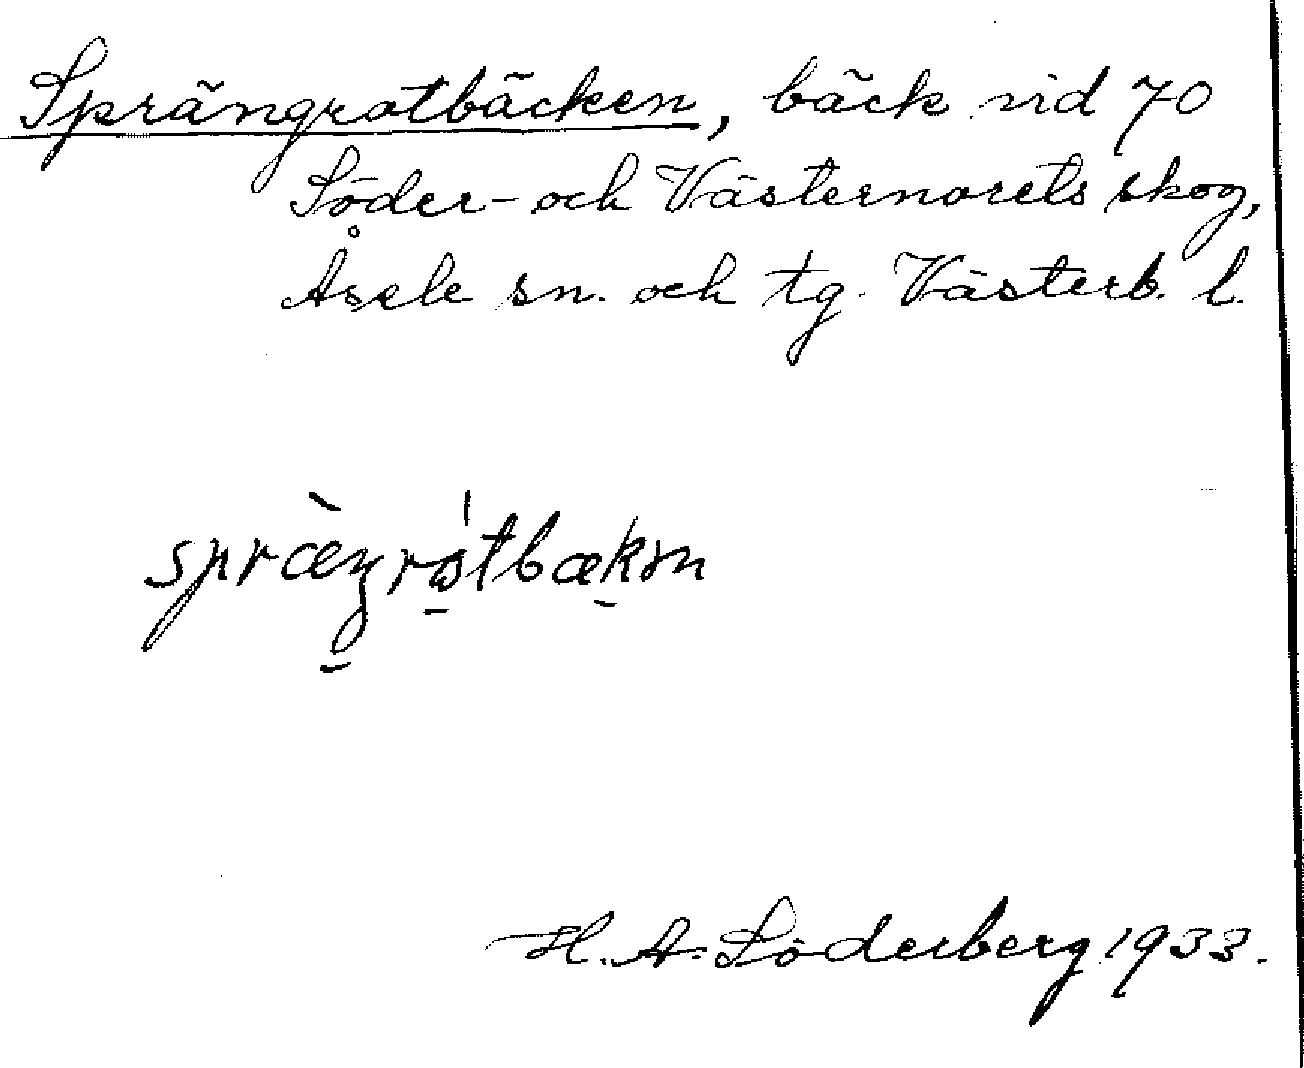 Sprängrotbäcken, bäck vid 70
Söder- och Västernorets skog,
Åsele sn. och tg. Västerb. l.
spræ̀ŋrótbækən
H. A. Söderberg 1933.